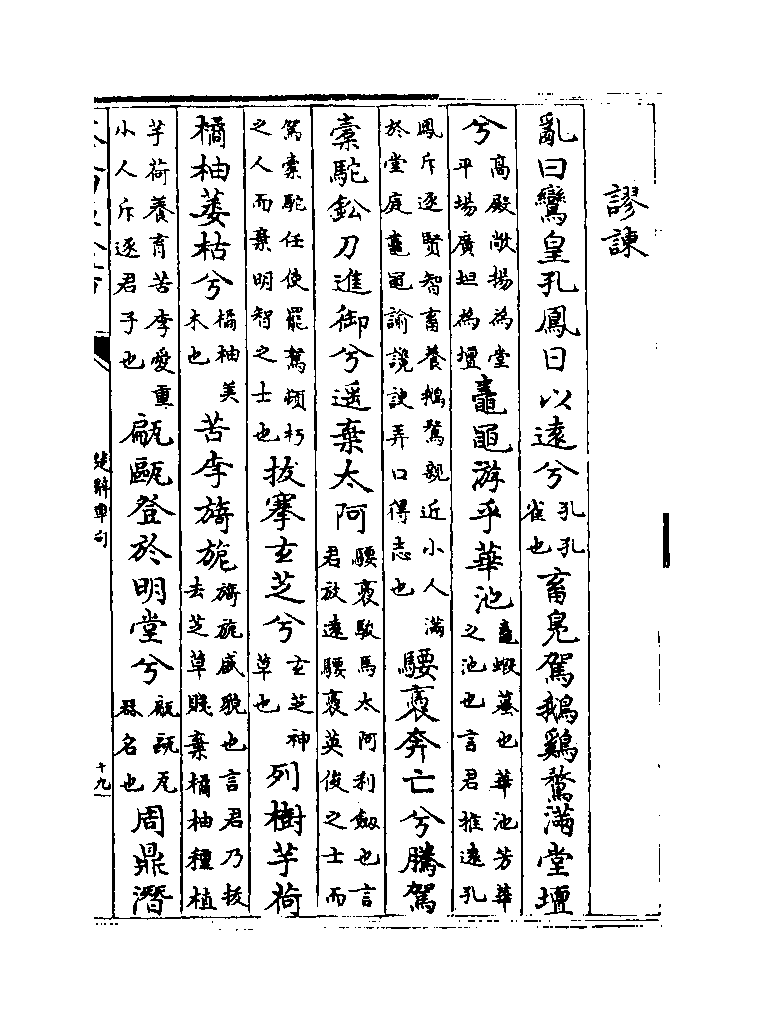 謬諫
亂曰鸞皇孔鳳日以遠兮孔孔雀也畜鳬駕鵝鷄鶩滿堂壇
兮高殿敞揚為堂平場廣坦為壇鼃黽游乎華池鼃蝦蟇也華池芳華之池也言君推遠孔
鳳斥逐賢智畜養鵝鶩親近小人滿於堂庭鼃黽諭讒諛弄口得志也騕褭奔亡兮騰駕
橐駝鈆刀進御兮遥棄太阿騕褭駿馬太阿利劒也言君放遠騕褭英俊之士而
駕橐駝任使罷駑頑朽之人而棄明智之士也拔搴玄芝兮玄芝神草也列樹芋荷
橘柚萎枯兮橘柚美木也苦李旖旎旖旎盛貌也言君乃拔去芝草賤棄橘柚種植
芋荷養育苦李愛重小人斥逐君子也甂甌登於明堂兮甂甌瓦器名也周鼎潛
楚辭章句
十九